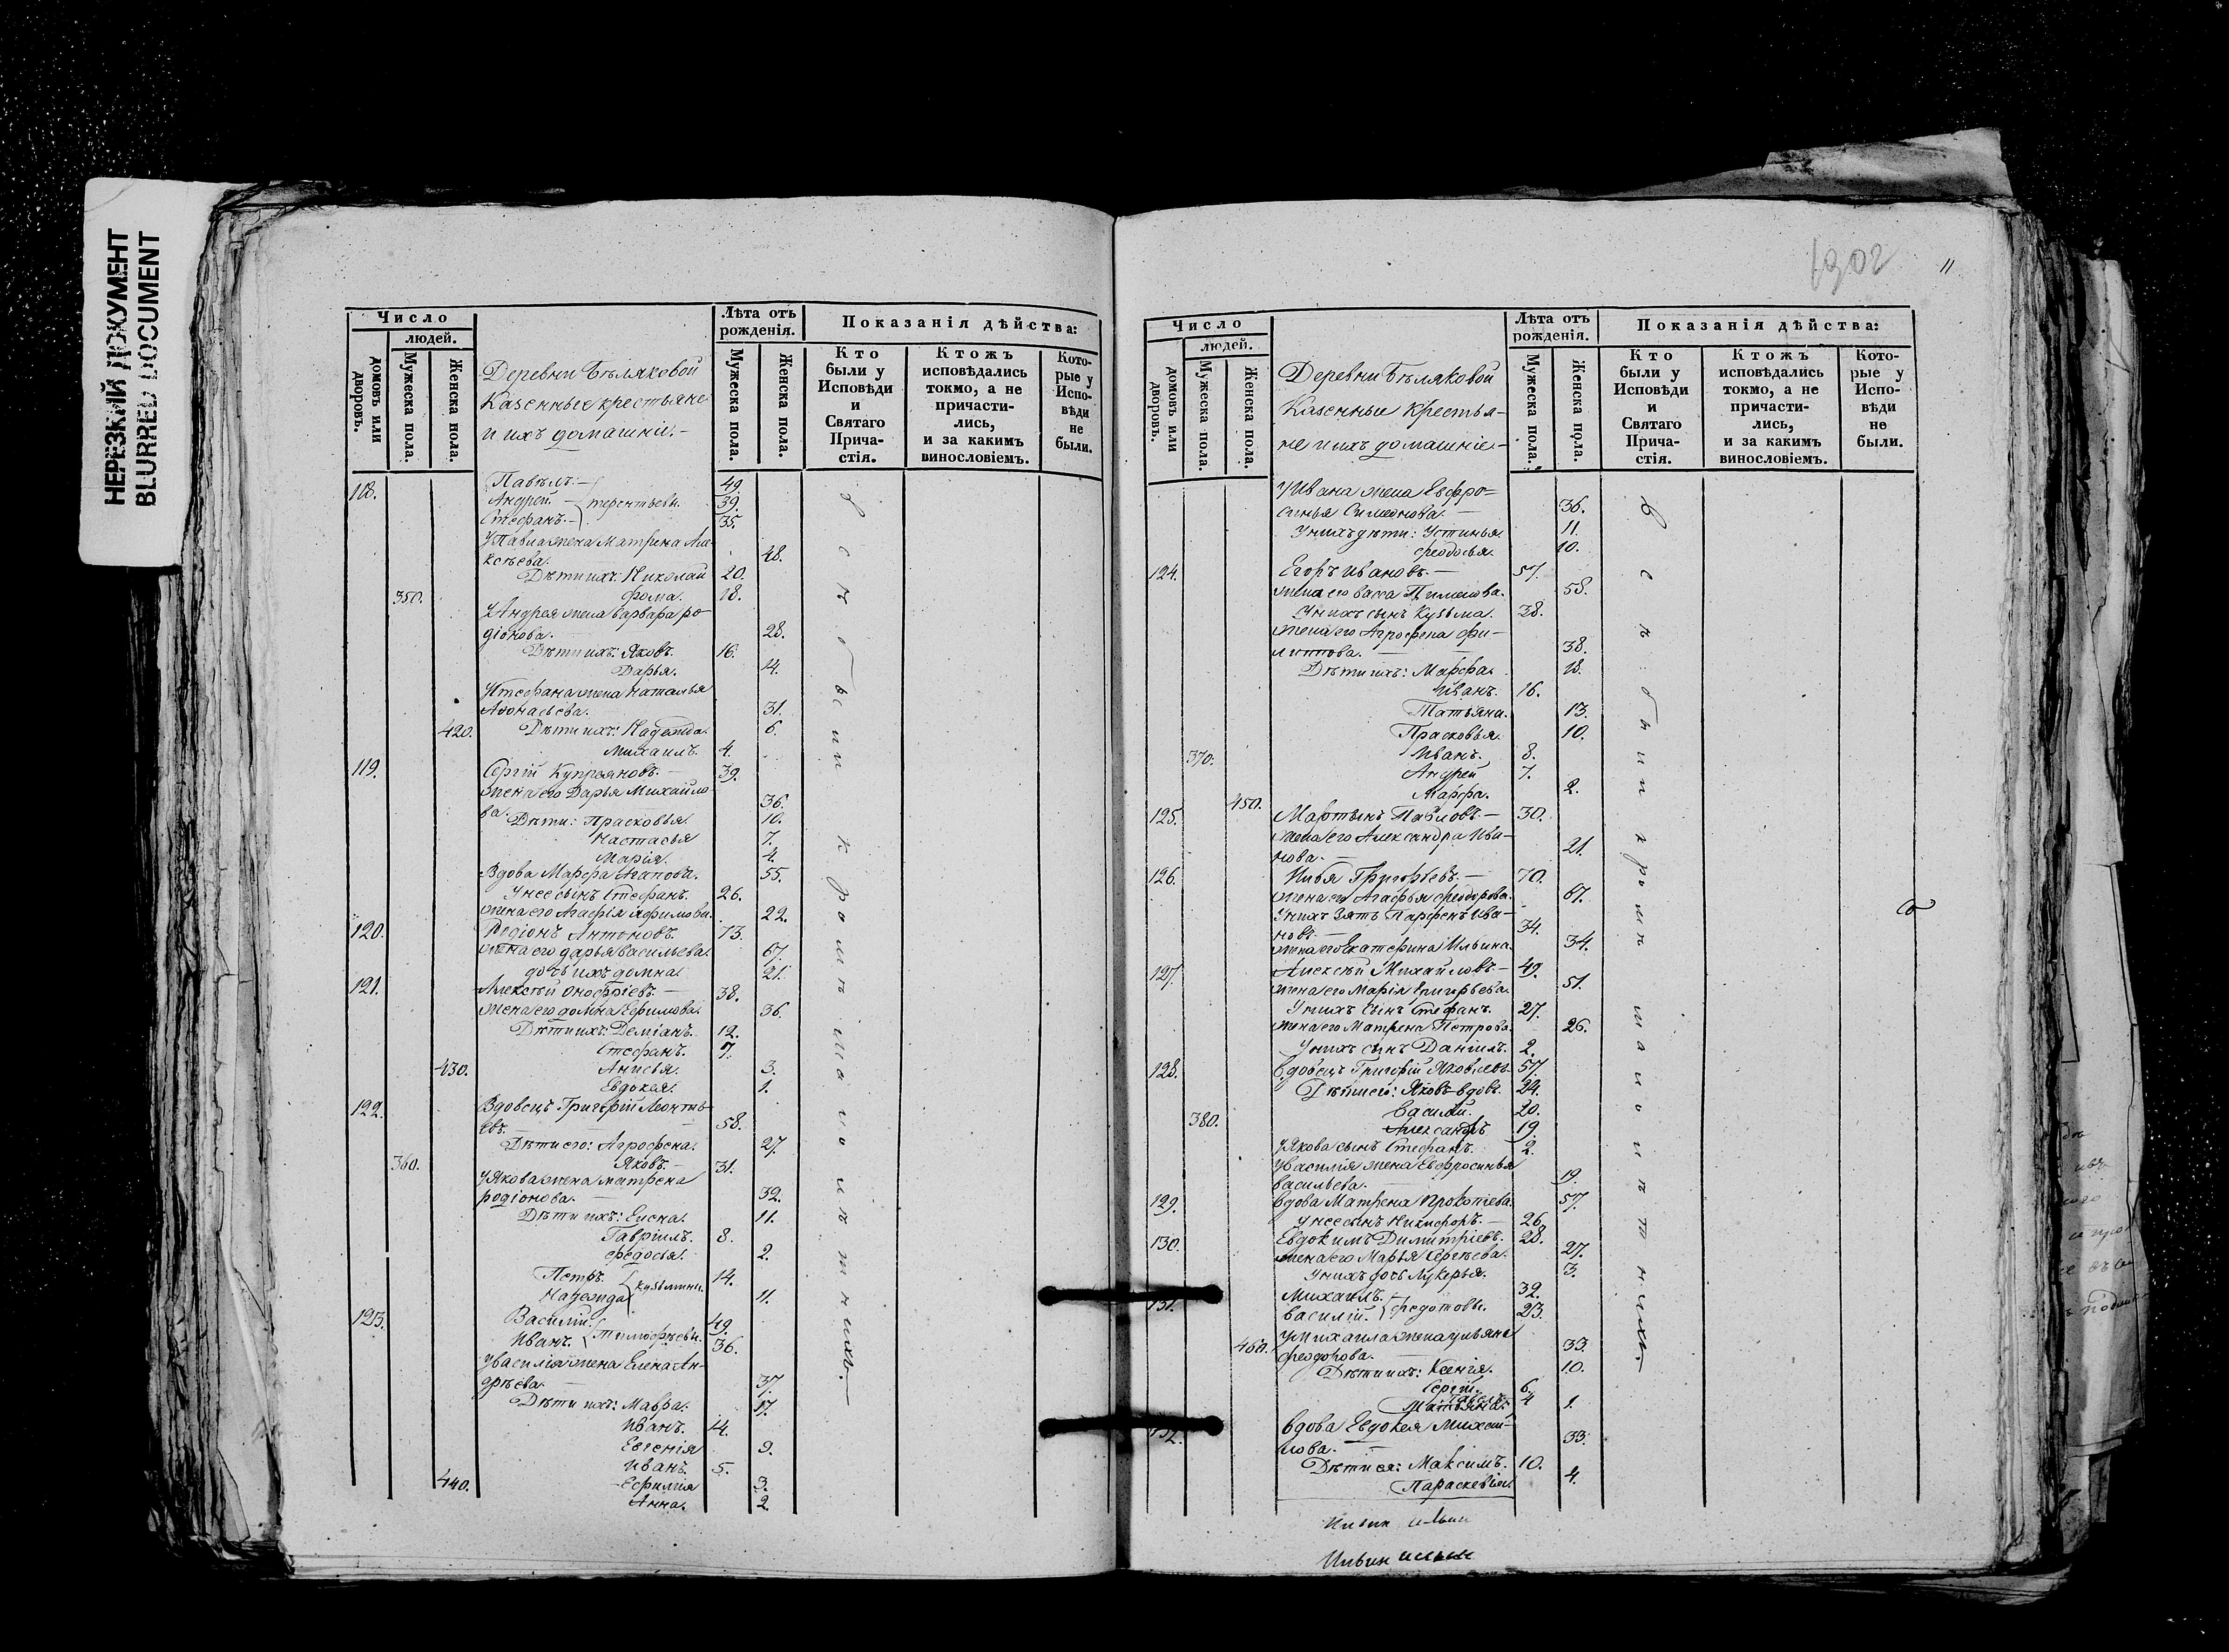 НЕРЕЗКИЙ ДОКУМЕНТ
BLURRED DOCUMENT
Число
людей.
домовъ или дворовъ.
Мужеска пола.
Женска пола.
Деревни Бѣляковой
Казенные крестьяне
и ихъ домашніе.-
Лѣта отъ рожденія.
Мужеска пола.
Женска пола.
Показанія дѣйства:
Кто были у Исповѣди и Святаго Прича-стія.
Ктожъ исповѣдались токмо, а не причасти-лись, и за какимъ винословіемъ.
Кото-рые у Испо-вѣди не были.
118. Павелъ. 49.
Андрей. Терентьевы. 39.
Стефанъ. 35.
У Павла жена Матрена Але-
ксѣева. 48.
Дѣти ихъ: Николай 20.
350. Фома. 18.
У Андрея жена Варвара Ро-
діонова. 28.
Дѣти ихъ: Яковъ. 16.
Дарья. 14.
У Стефана жена Наталья
Афонасьева. 31.
420. Дѣти ихъ: Надежда. 6.
Михаилъ. 4.
119. Сергій Купреяновъ. 39.
жена его Дарья Михайло-
ва. 36.
Дѣти: Прасковья. 10.
Настасья 7.
Марія. 4.
Вдова Марфа Агапова. 55.
У нее сынъ Стефанъ. 26.
жена его Агафія 22.
120. Родіонъ Антоновъ. 73.
жена его Дарья Васильева. 67.
дочь ихъ Домна. 21.
121. Алексѣй Онофріевъ. 38.
жена его Домна Ефимова. 36.
Дѣти ихъ: Деміанъ. 12.
Стефанъ. 7.
430. Анисья. 3.
Евдокея. 1.
122. Вдовецъ Григорій Леонтье-
въ. 58.
Дѣти его: Агрофена. 27.
360. Яковъ. 31.
У Якова жена Матрена
Родіонова. 32.
Дѣти ихъ: Елена. 11.
Гавріилъ. 8.
Федосья. 2.
Петръ. Кузьмины. 14.
Надежда 11.
123. Василій. 49.
Иванъ. Тимофѣевы. 36.
У Василія жена Елена Ан-
дрѣева. 37.
Дѣти ихъ: Мавра. 17.
Иванъ. 14.
Евгенія 9.
Иванъ. 5.
440. Ефимія 3.
Анна. 2.
1302
11
Число
людей.
домовъ или дворовъ.
Мужеска пола.
Женска пола.
Деревни Бѣляковой
Казенные Крестья-
не и ихъ домашніе.-
Лѣта отъ рожденія.
Мужеска пола.
Женска пола.
Показанія дѣйства:
Кто были у Исповѣди и Святаго Прича-стія.
Ктожъ исповѣдались токмо, а не причасти-лись, и за какимъ винословіемъ.
Кото-рые у Испо-вѣди не были.
У Ивана жена Евфро-
синья Симеонова. 36.
У нихъ дѣти: Устинья. 11.
Феодосья. 10.
124. Егоръ Ивановъ. 57.
жена его Васса Пименова. 58.
У нихъ сынъ Кузьма. 38.
жена его Агрофена Фи-
липпова. 38.
Дѣти ихъ: Марфа. 18.
Иванъ. 16.
Татьяна. 13.
Прасковья. 10.
370. Иванъ. 8.
Андрей 7.
450. Марфа. 2.
125. Мартынъ Павловъ 30.
жена его Александра Ива-
нова. 21.
126. Илья Григорьевъ. 70.
жена его Агафья Феодорова. 67.
У нихъ Зять Парфенъ Ива-
новъ 34.
жена его Екатерина Ильина. 34.
127. Алексѣй Михайловъ. 49.
жена его Марія Григорьева. 51.
У нихъ Сынъ Стефанъ. 27.
жена его Матрена Петрова. 26.
У нихъ сынъ Даніилъ. 2.
128. Вдовецъ Григорій Яковлевъ 57.
Дѣти его: Яковъ вдовъ. 24.
Василій. 20.
380. Александръ 19.
У Якова сынъ Стефанъ. 2.
У Василія жена Евфросинья
Васильева. 19.
129. Вдова Матрена Прокопьева. 57.
У нее сынъ Никифоръ. 26.
130. Евдокимъ Димитріевъ. 28.
жена его Марья Сергѣева. 27.
У нихъ дочь Лукерья. 3.
131. Михаилъ. 32.
Василій. Федотовы. 23.
У Михаила жена Ульяна
460. Феодорова. 33.
Дѣти ихъ: Ксенія. 10.
Сергій. 6.
Павелъ. 4
Татьяна. 1.
132. Вдова Евдокея Михай-
лова. 33.
Дѣти ея: Максимъ. 10.
Параскевія. 4.